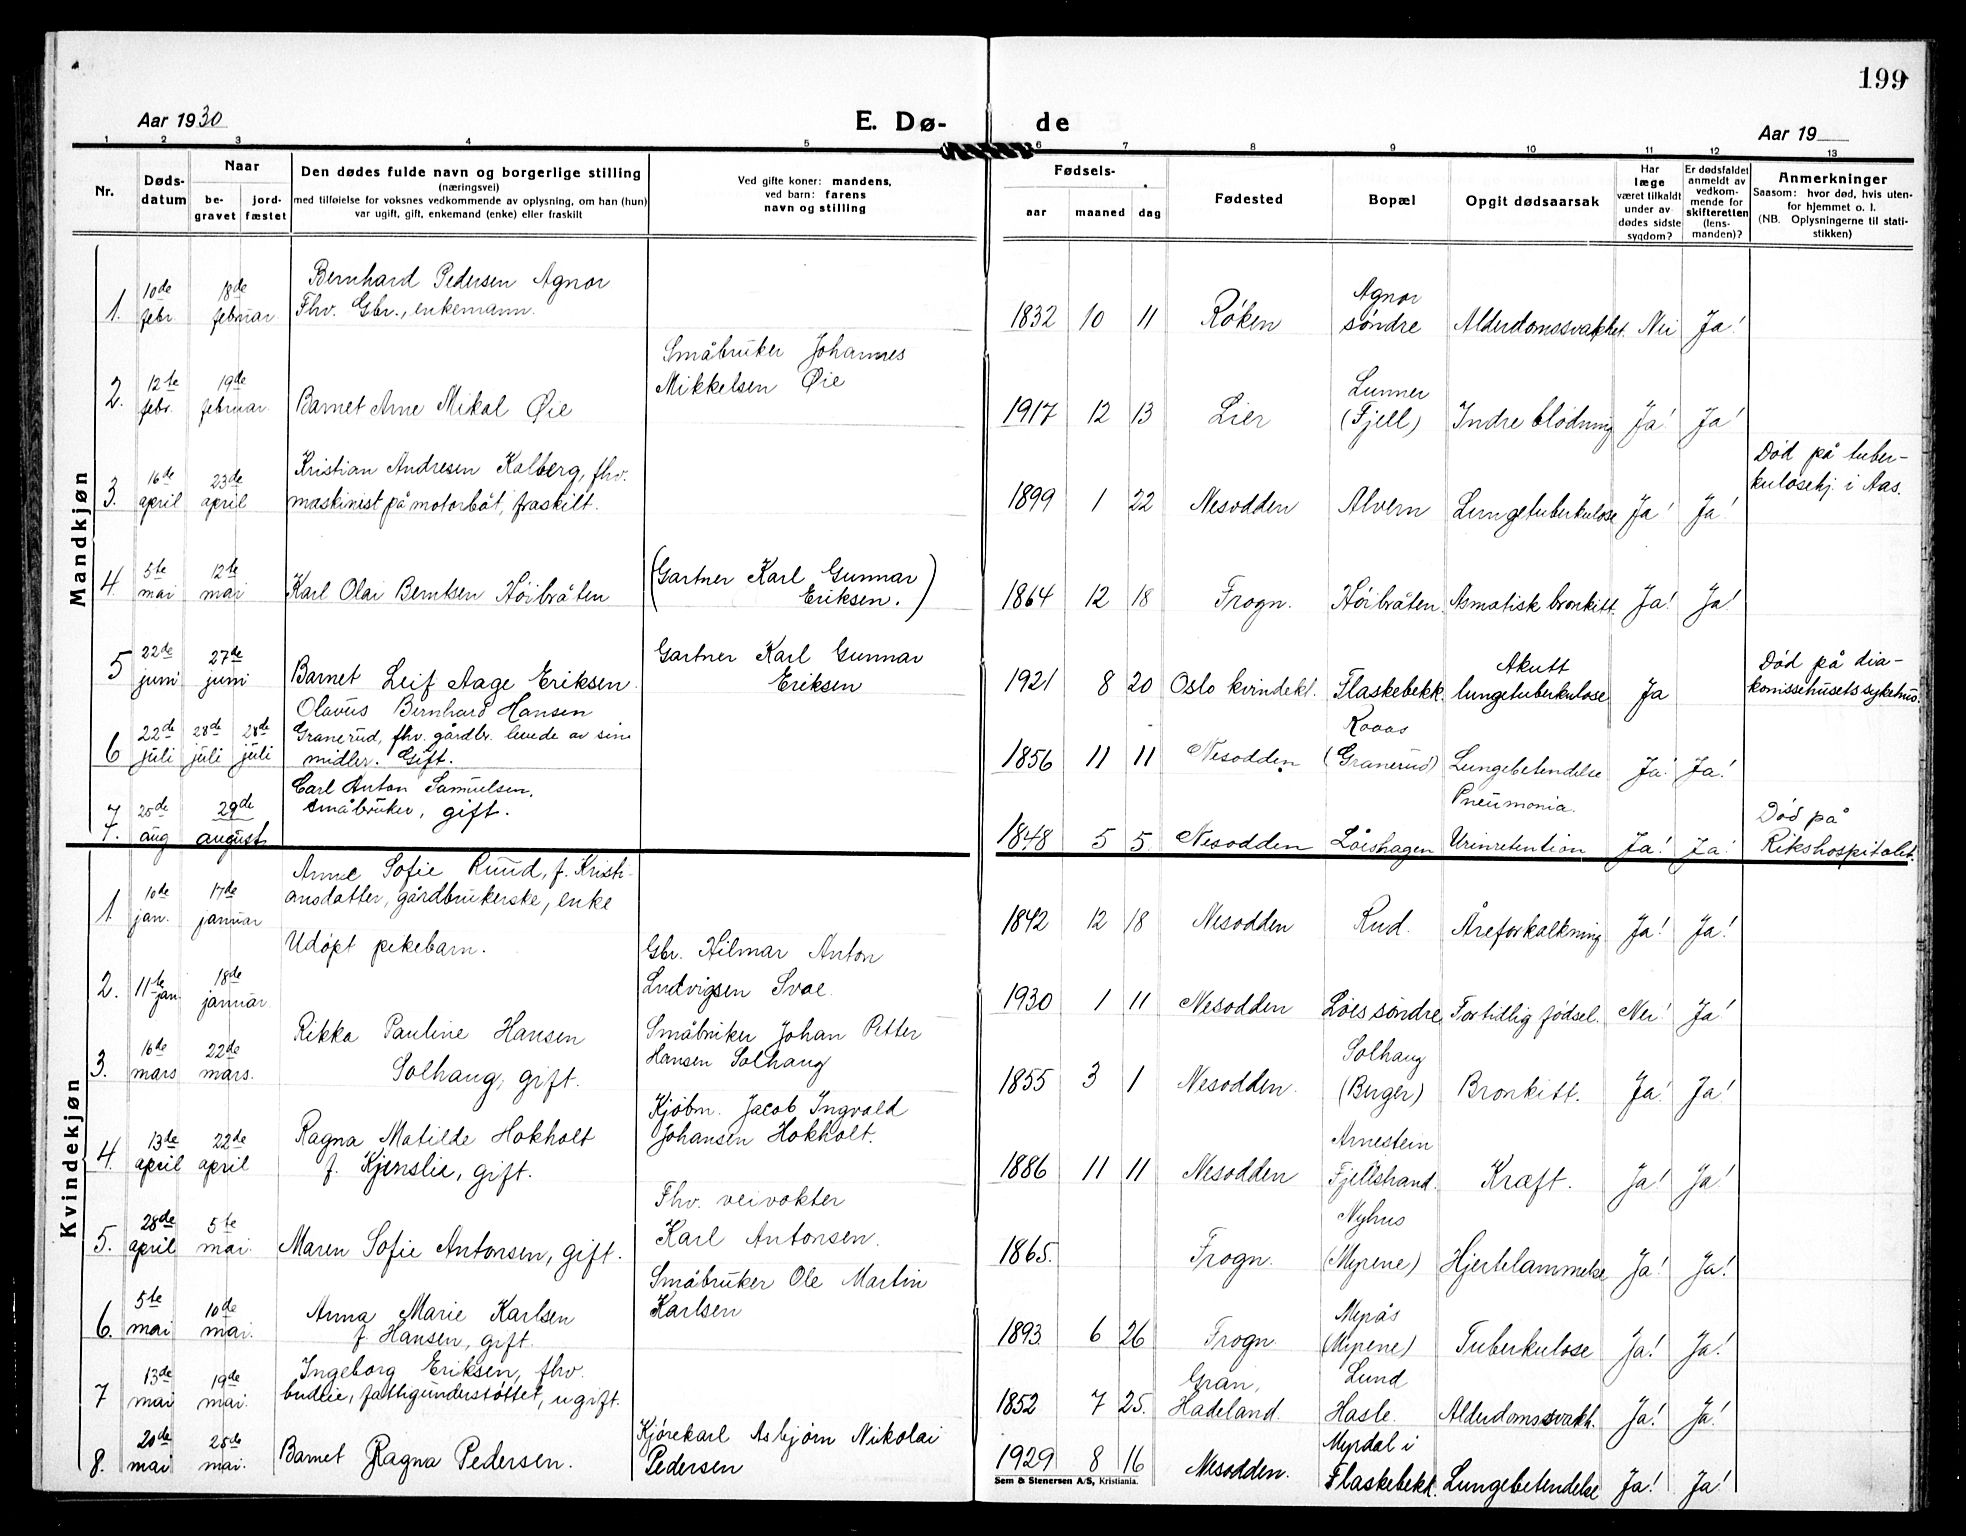 199
Aar 1930
E. Dø-
de
Aar 19
1 2 3 4 5 6 7 8 9 10 11 12 13
Nr.
Døds-
datum
Naar
be-
gravet
jord-
fæstet
Den dødes fulde navn og borgerlige stilling
(næringsvei)
med tilføielse for voksnes vedkommende av oplysning, om han (hun)
var ugift, gift, enkemand (enke) eller fraskilt
Ved gifte koner: mandens,
ved barn: farens
navn og stilling
Fødsels-
aar maaned dag
Fødested
Bopæl
Opgit dødsaarsak
Har
læge
været tilkaldt
under av-
dødes sidste
sygdom?
Er dødsfaldet
anmeldt av
vedkom-
mende for
skifteretten
(lens-
manden)?
Anmerkninger
Saasom: hvor død, hvis uten-
for hjemmet o. l.
(NB. Oplysningerne til stati-
stikken)
Mandkjøn
1. 10de febr. 18de februar
Bernhard Pedersen Agnor
Fhv. Gbr., enkemann.
1832 10 11 Røken Agnor
søndre Alderdomssvakhet. Nei Ja!
2. 12te febr. 19de februar
Barnet Arne Mikal Øie
Småbruker Johannes
Mikkelsen Øie
1917 12 13 Lier Lunner
(Fjell) Indre blødning Ja! Ja!
3. 16de april 23de april
Kristian Andresen Kalberg, fhv.
maskinist på motorbåt, fraskilt.
1899 1 22 Nesodden Alvern Lungetuberkulose Ja! Ja!
Død på tuber-
kulosehj. i Aas.
4. 5te mai 12te mai
Karl Olai Berntsen Höibråten
(Gartner Karl Gunnar
Eriksen.)
1864 12 18 Frogn. Höibråten. Asmatisk bronkitt. Ja! Ja!
5 22de juni 27de juni
Barnet Leif Aage Eriksen.
Gartner Karl Gunnar
Eriksen
1921 8 20 Oslo kvindekl. Flaskebekk. Akutt
lungetuberkulose Ja
Død på dia-
konissehusets sykehus.
6 22de juli 28de juli 28de juli
Olavus Bernhard Hansen
Granerud, fhv. gårdbr. levede av sine
midler. Gift.
1856 11 11 Nesodden Kaaas
(Granerud) Lungebetendelse Ja! Ja!
7 7. 25de aug 29de august
Carl Anton Samuelsen,
småbruker, gift.
1848 5 5. Nesodden Løishagen Pneumonia.
Urinretention Ja! Ja!
Død på
Rikshospitalet.
Kvindekjøn
1. 10de jan. 17de januar
Anne Sofie Ruud, f. Kristi-
ansdatter, gårdbrukerske, enke
1842 12 18 Nesodden Rud. Åreforkalkning Ja! Ja!
2. 11te jan. 18de januar
Udøpt pikebarn.
Gbr. Hilmar Anton
Ludvigsen Svae.
1930 1 11 Nesodden Løes søndre For tidlig fødsel. Nei! Ja!
3. 16de mars 22de mars.
Rikka Pauline Hansen
Solhaug, gift.
Småbruker Johan Petter
Hansen Solhaug
1855 3 1 Nesodden. Solhaug
(Berger) Bronkitt. Ja! Ja!
4. 13de april 22de april
Ragna Matilde Hokholt
f. Kjenslie, gift.
Kjøbm. Jacob Ingvald
Johansen Hokholt.
1886 11 11 Nesodden Arnestein
Fjellstrand. Kræft. Ja! Ja!
5. 28de april 5te mai.
Maren Sofie Antonsen, gift.
Fhv. veivokter
Karl Antonsen.
1865. Frogn. Nyhus
(Myrene) Hjertelammelse Ja! Ja!
6. 5te mai 10de mai.
Anna Marie Karlsen
f. Hansen, gift.
Småbruker Ole Martin
Karlsen
1893 6 26 Frogn. Myrås
(Myrene) Tuberkulose Ja! Ja!
7 13de mai 19de mai.
Ingeborg Eriksen, fhv.
budeie, fattigunderstøttet, ugift.
1852 7 25. Gran,
Hadeland. Lund
Hasle. Alderdomssvakh. Ja! Ja!
8. 20de mai 25de mai.
Barnet Ragna Pedersen.
Kjørekarl Asbjørn Nikolai
Pedersen
1929 8 16 Nesodden. Myrdal i
Flaskebekk. Lungebetendelse Ja! Ja!
Sem & Stenersen A/S, Kristiania.